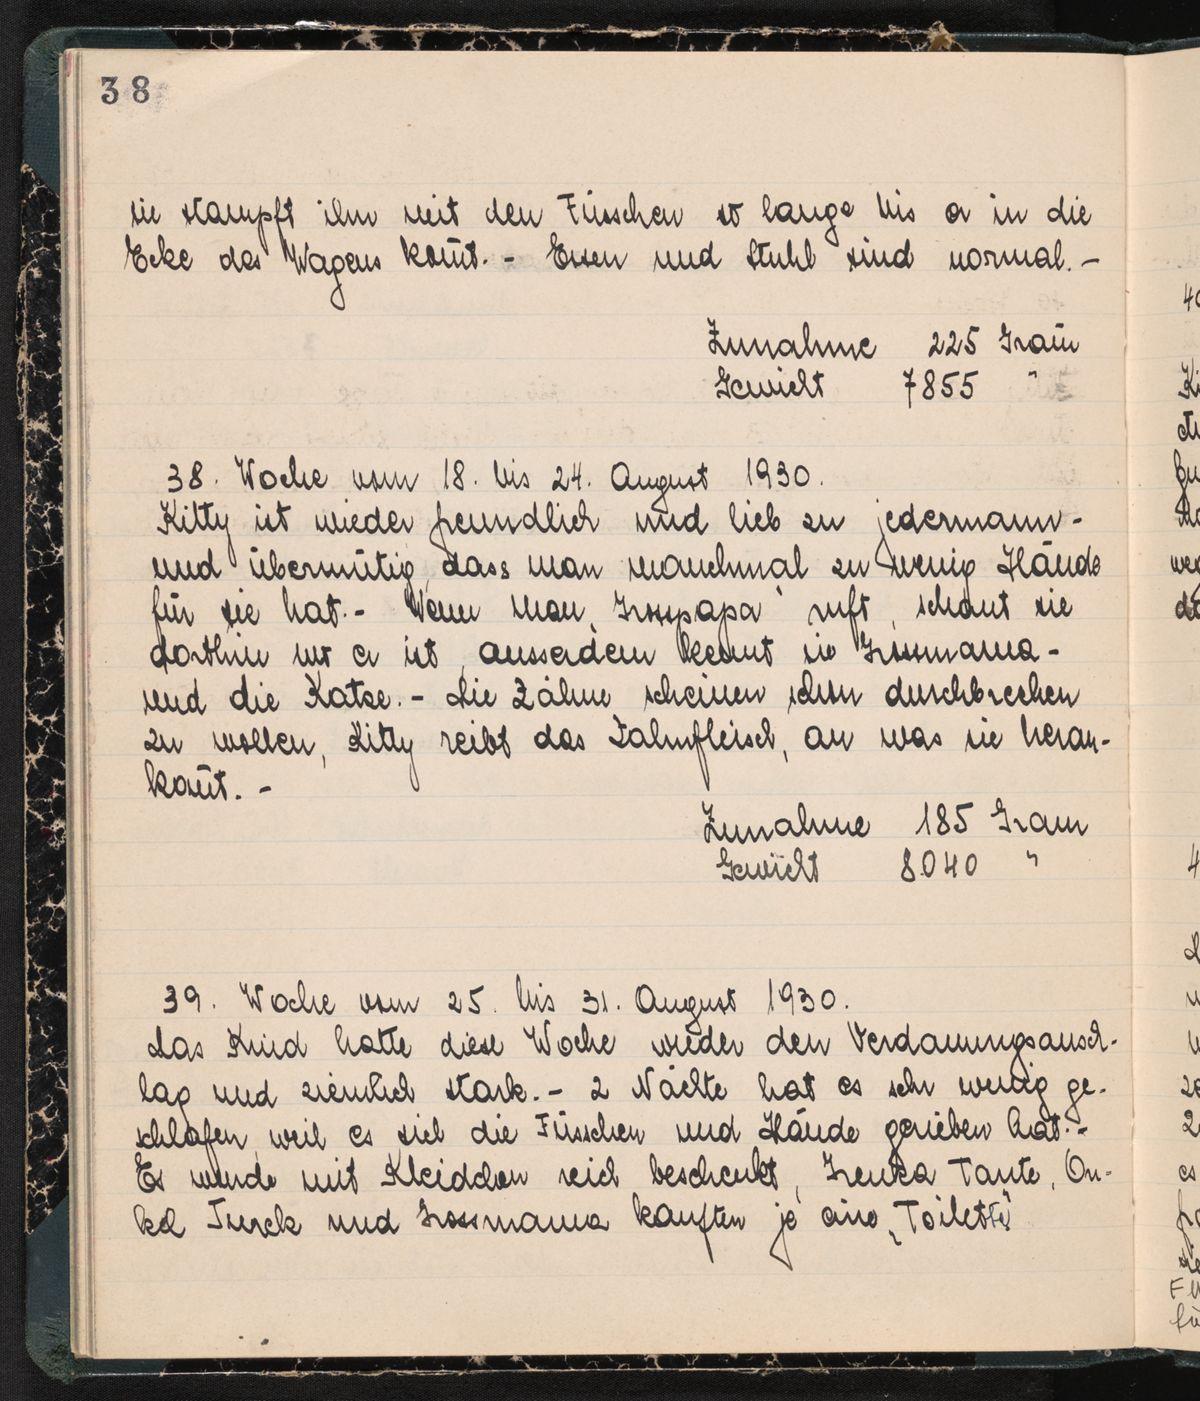 38
sie stampft ihn mit den Füsschen so lange bis er in die
Ecke des Wagens kom̄t. - Essen und Stuhl sind normal. -
Zunahme 225 Gram̄
Gewicht 7855 "
38. Woche vom 18. bis 24. August 1930.
Kitty ist wieder freundlich und lieb zu jedermann -
und übermütig, dass man manchmal zu wenig Hände
für sie hat. - Wenn man "Grosspapa" ruft, schaut sie
dorthin wo er ist, ausserdem kennt sie Grossmama -
und die Katze. - Die Zähne scheinen schon durchbrechen
zu wollen, Kitty reibt das Zahnfleisch, an was sie heran-
kom̄t. -
Zunahme 185 Gram
Gewicht 8040 "
39. Woche vom 25. bis 31. August 1930.
Das Kind hatte diese Woche wieder den Verdauungsausch-
lag und ziemlich stark. - 2 Nächte hat es sehr wenig ge-
schlafen, weil es sich die Füsschen und Hände gerieben hat. -
Es wurde mit Kleidchen reich beschenkt, Irenka Tante, On-
kel Turek und Grossmama kauften je eine "Toilette"